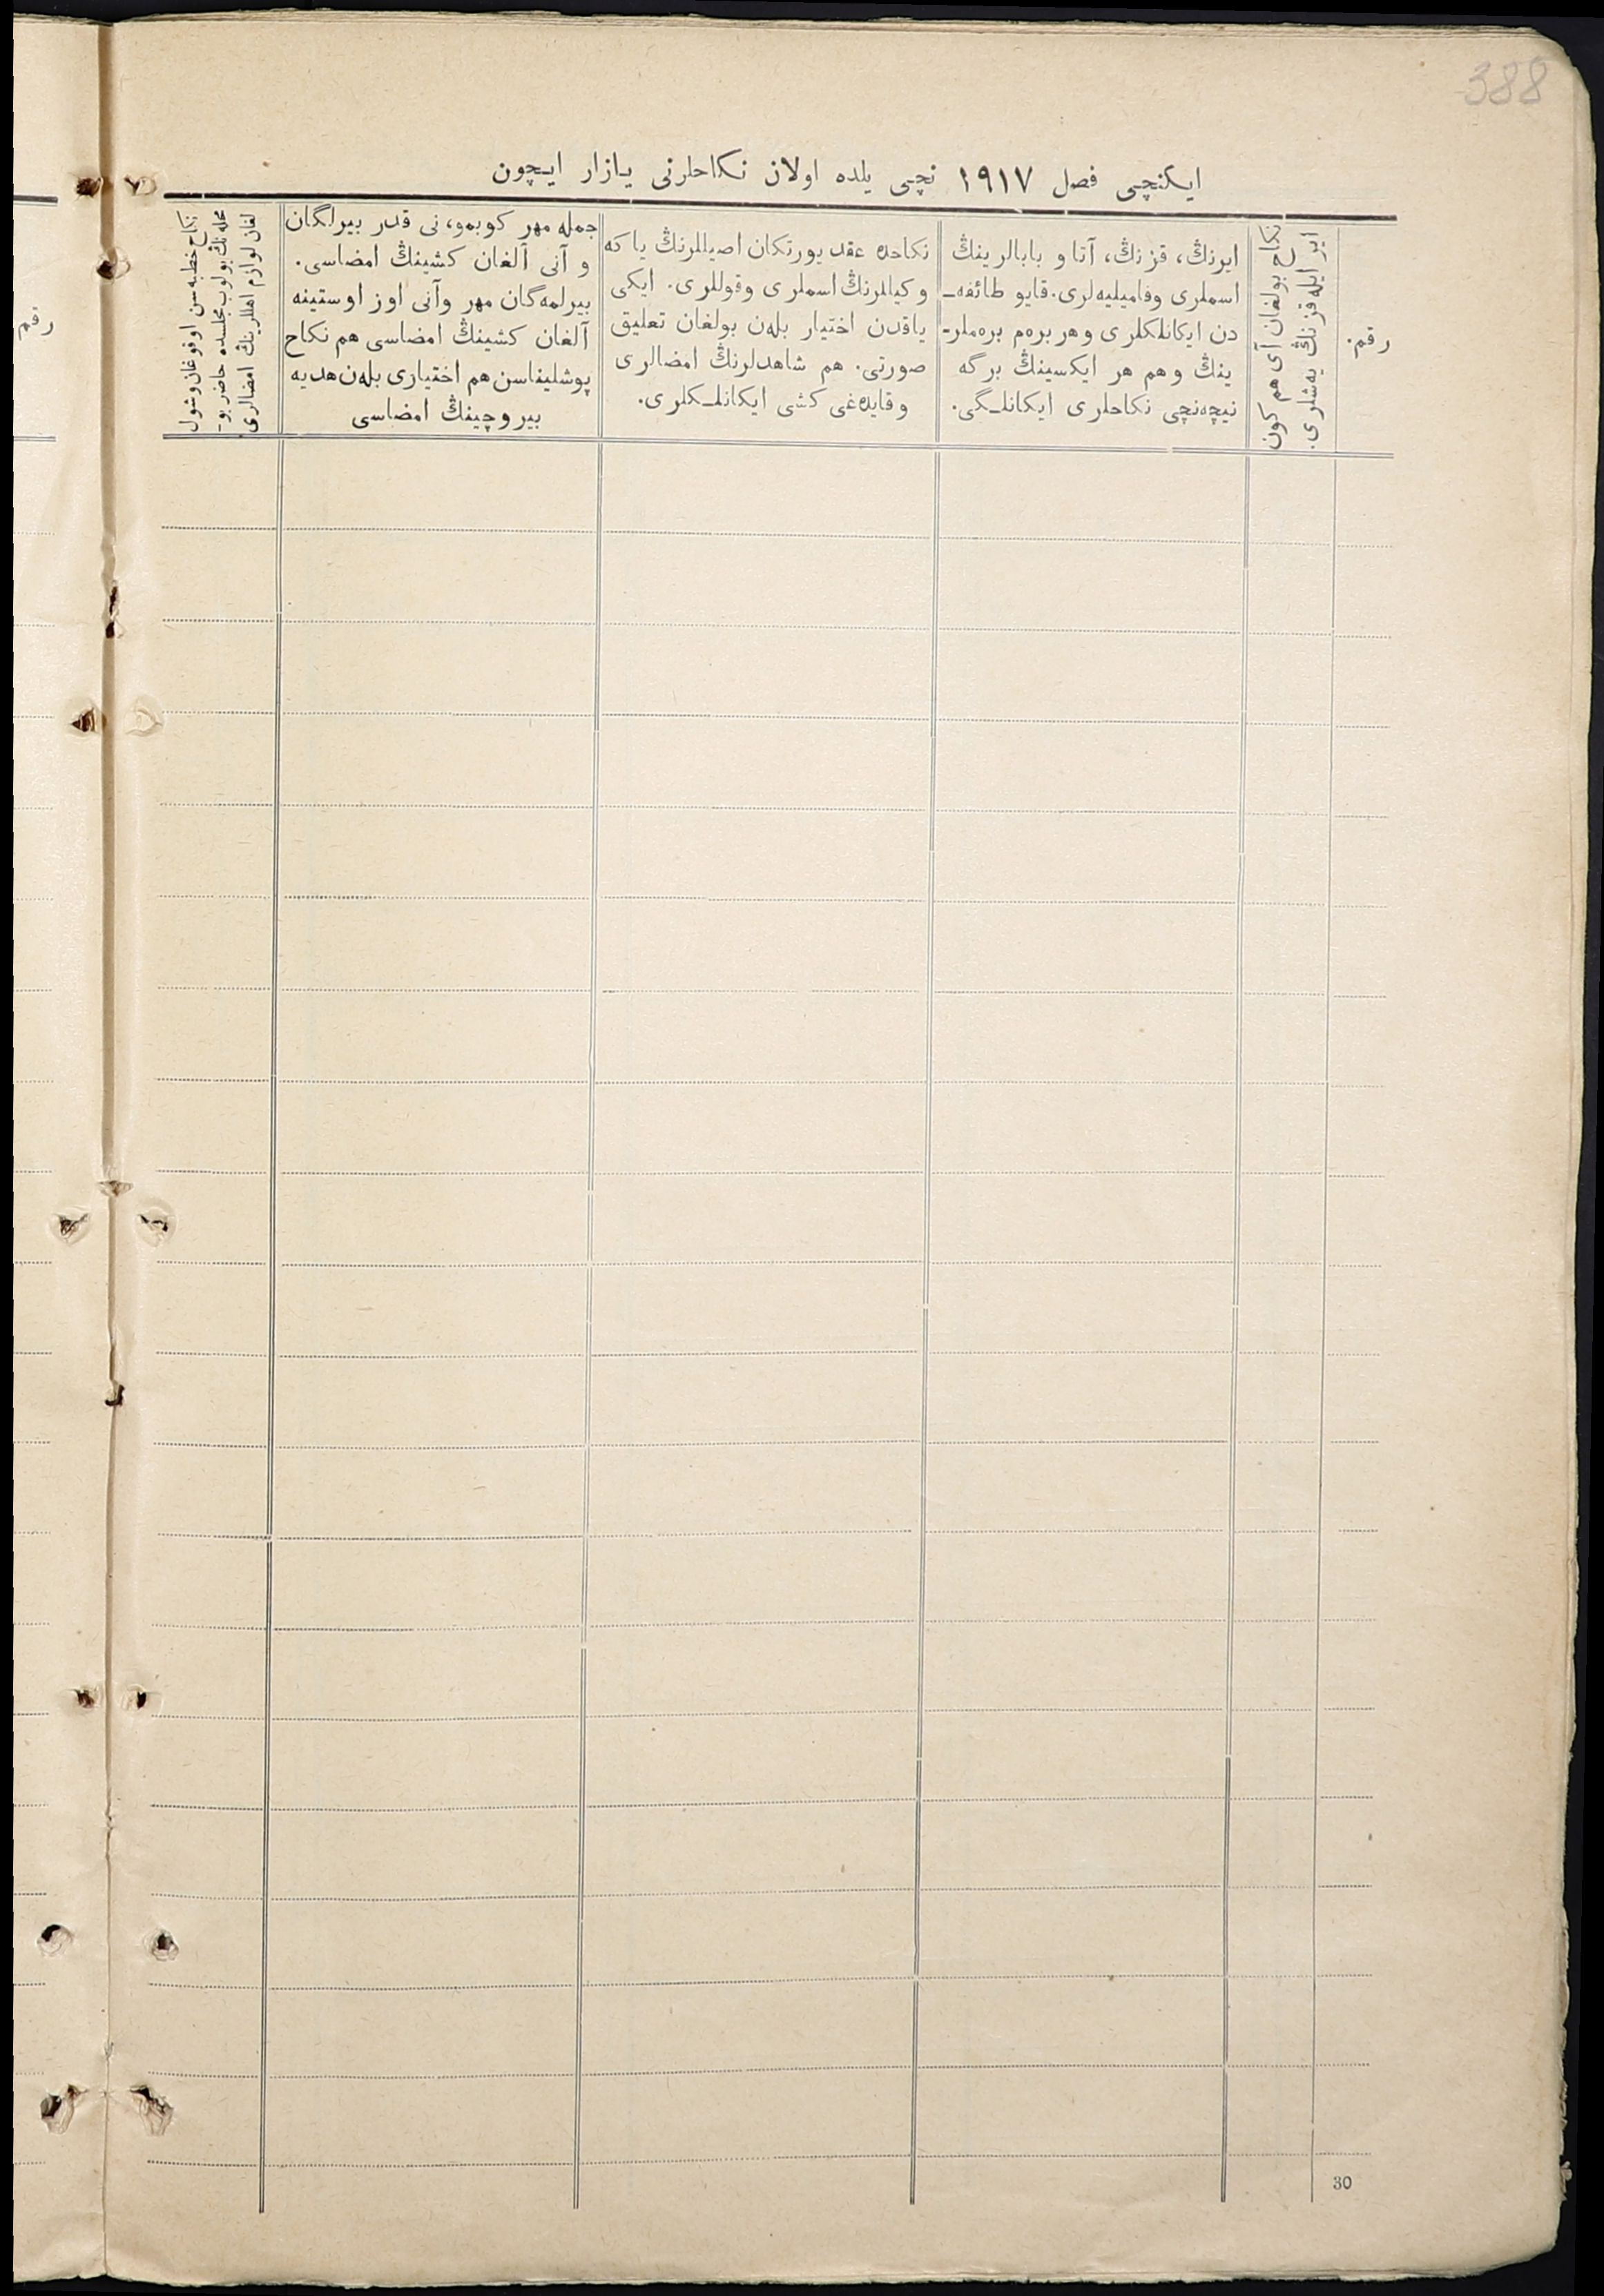 388
ایکنچی فصل ۱۹۱۷ نچی یلده اولان نکاحلرنی یازار ایچون
رقم.
نکاح بولغان آی هم کون
ایر ایله قزنڭ یه‌شلری.
ایرنڭ، قزنڭ، آتا و بابالرینڭ
اسملری وفامیلیه‌لری. قایو طائفه‌ـ
دن ایکانلکلری وهر بره‌م بره‌ملرـ
ینڭ وهم هر ایکسینڭ برگه
نیچه‌نچی نکاحلری ایکانلـگی.
نکاحده عقد یورتکان اصیللرنڭ یا که
وکیللرنڭ اسملری وقوللری. ایکی
یاقدن اختیار بله‌ن بولغان تعلیق
صورتی. هم شاهدلرنڭ امضالری
وقایده‌غی کشی ایکانلـکلری.
جمله مهر کوبمو، نی قدر بیرلگان
و آنی آلغان کشینڭ امضاسی.
بیرلمه‌گان مهر وآنی اوز اوستینه
آلغان کشینڭ امضاسی هم نکاح
پوشلیناسن هم اختیاری بله‌ن هدیه
بیروچینڭ امضاسی
نکاح خطبه‌سن اوقوغان وشول
محله‌نڭ بولوب مجلسده حاضر بوـ
لغان لوازم اهللرینڭ امضالری
رقم
30